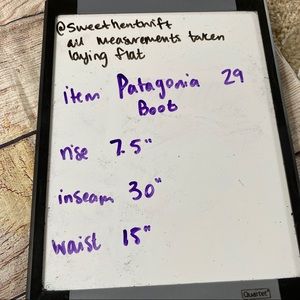 @sweethenthrift
all measurements taken
laying flat
item Patagonia 29
Boob
rise 7.5"
inseam 30"
waist 15"
Quartet